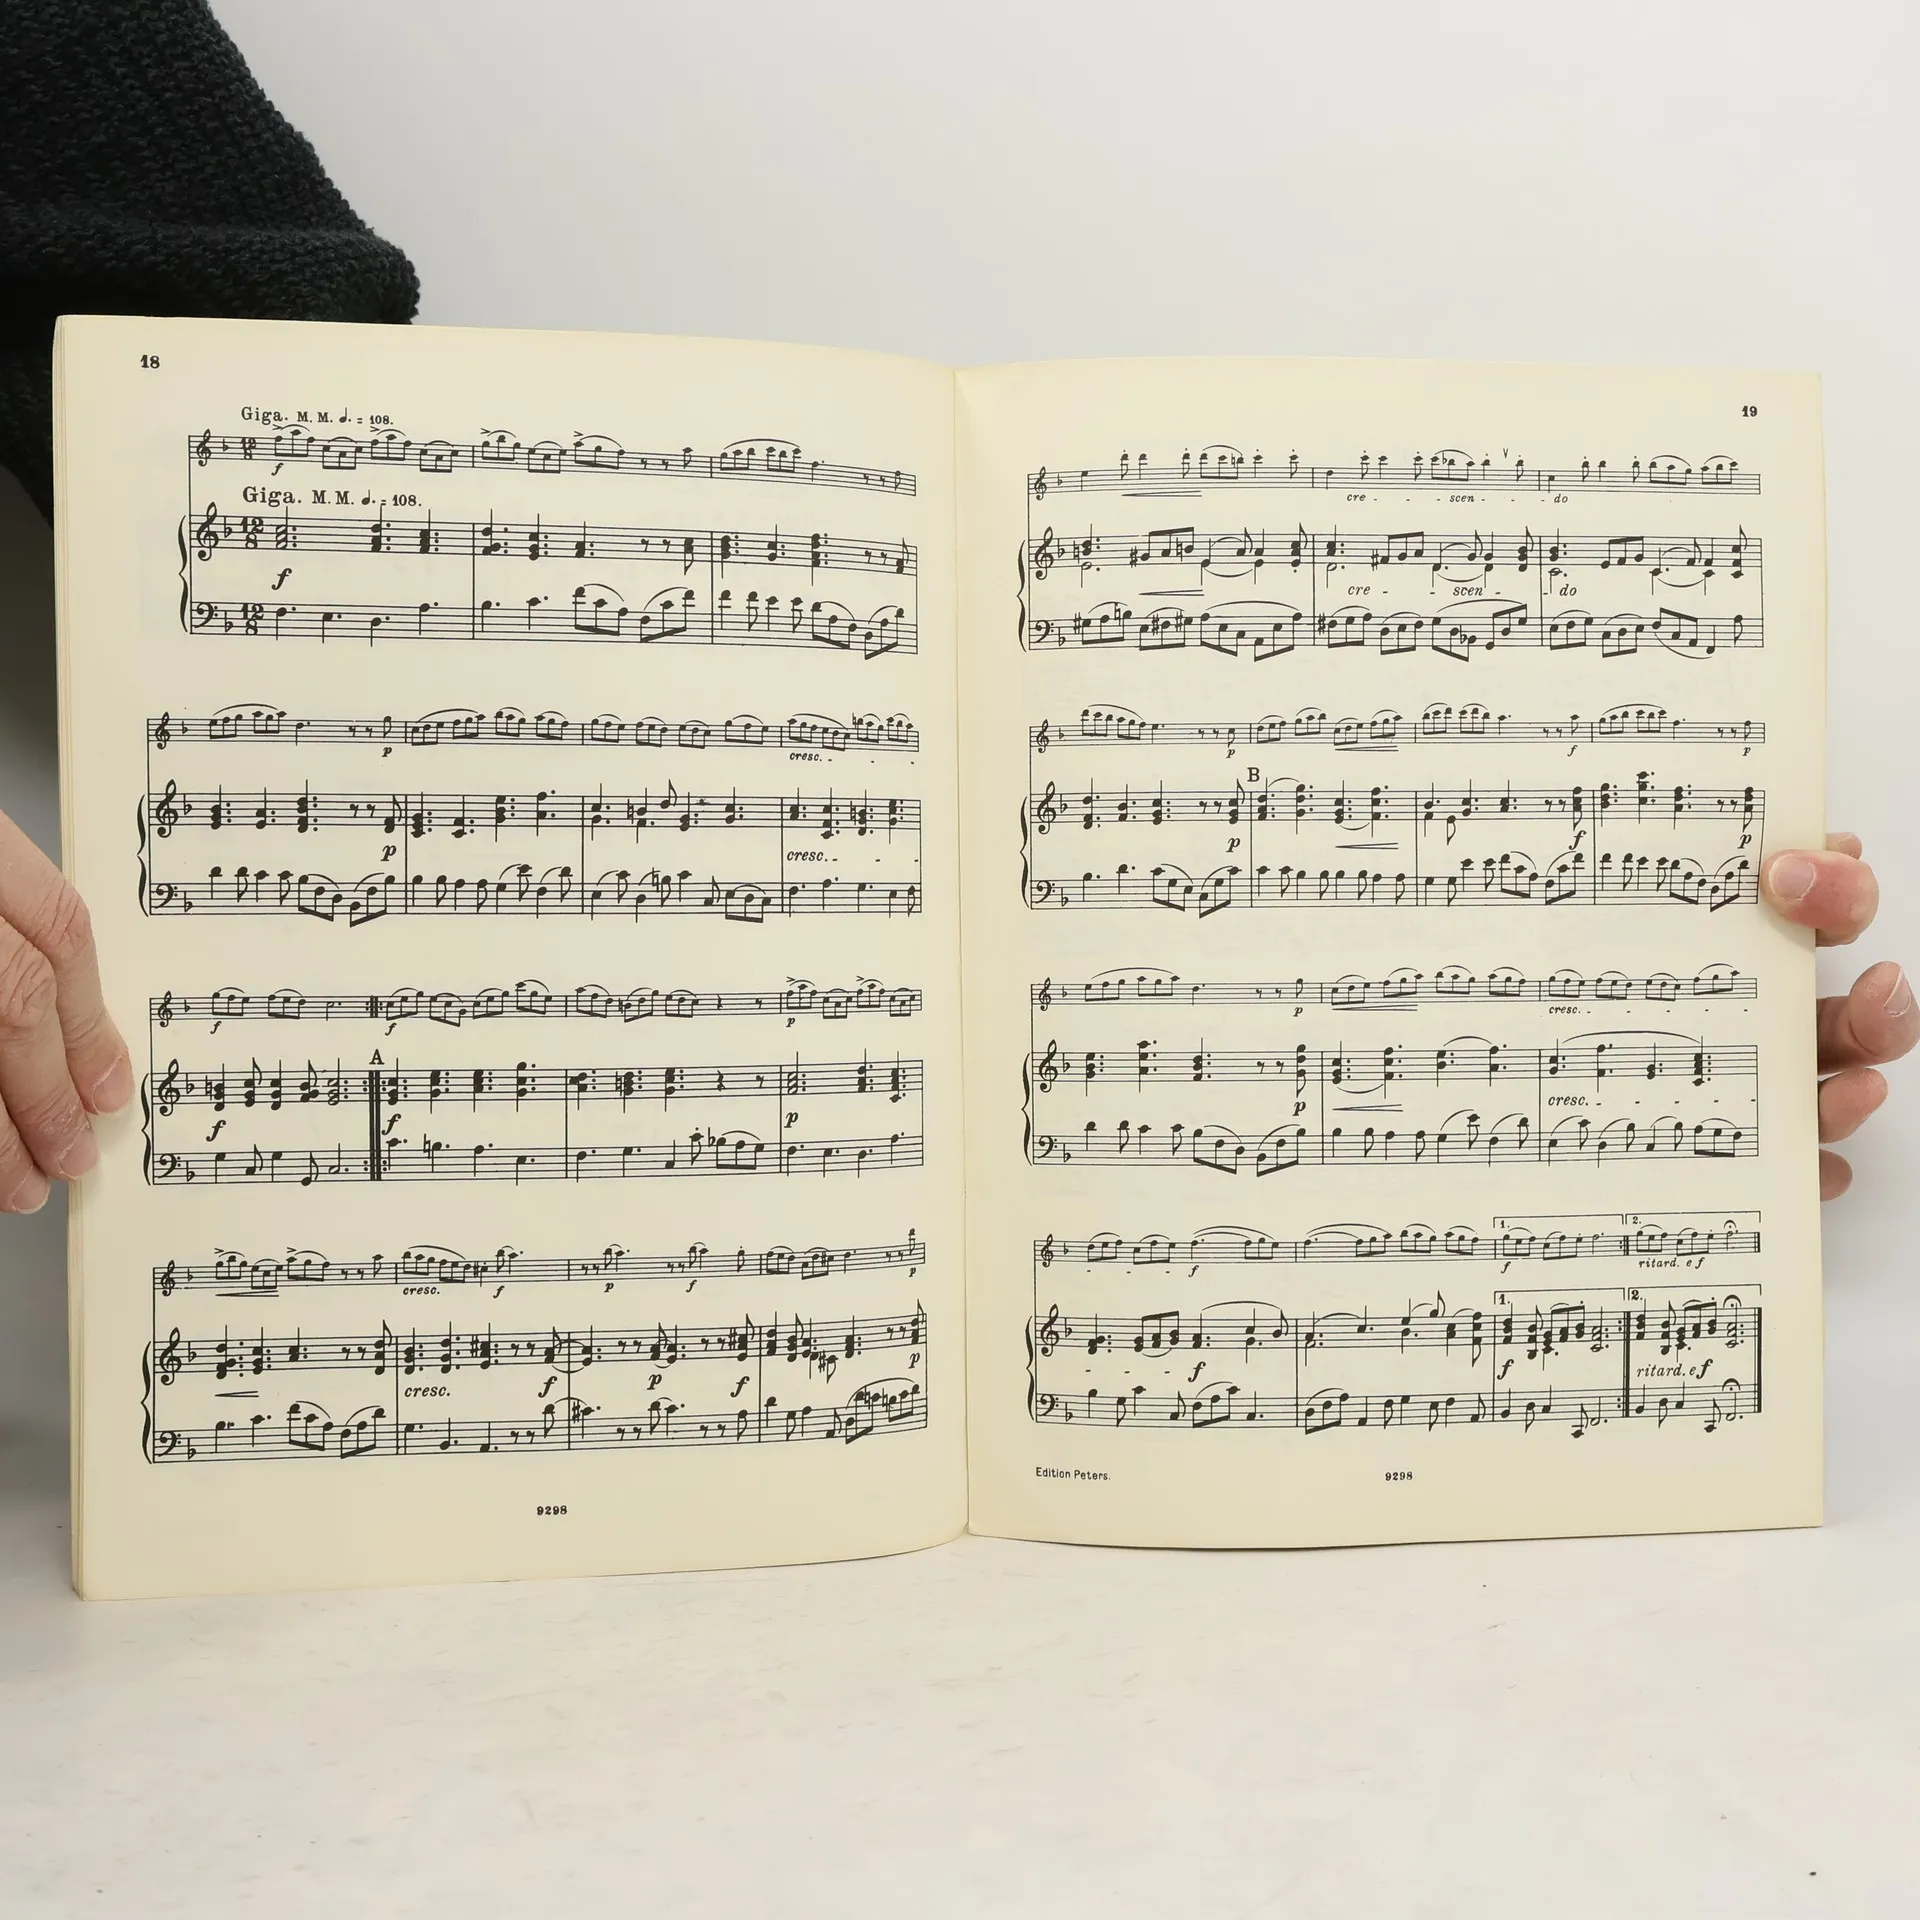 18
Giga. M. M. 𝅗𝅥. = 108.
12
8
f
Giga. M. M. 𝅗𝅥. = 108.
12
8
f
12
8
p
cresc. - - -
p
cresc. - - -
f
f
p
A
f
f
p
cresc.
f
p
f
p
cresc.
f
p
f
p
9298
19
cre - - - scen - - - do
cre - - scen - - do
p
f
p
B
p
f
p
p
cresc. - - - - -
p
cresc. - - - - -
1.
2.
- - - - f
f
ritard. e f
1.
2.
- - - - f
f
ritard. e f
Edition Peters.
9298